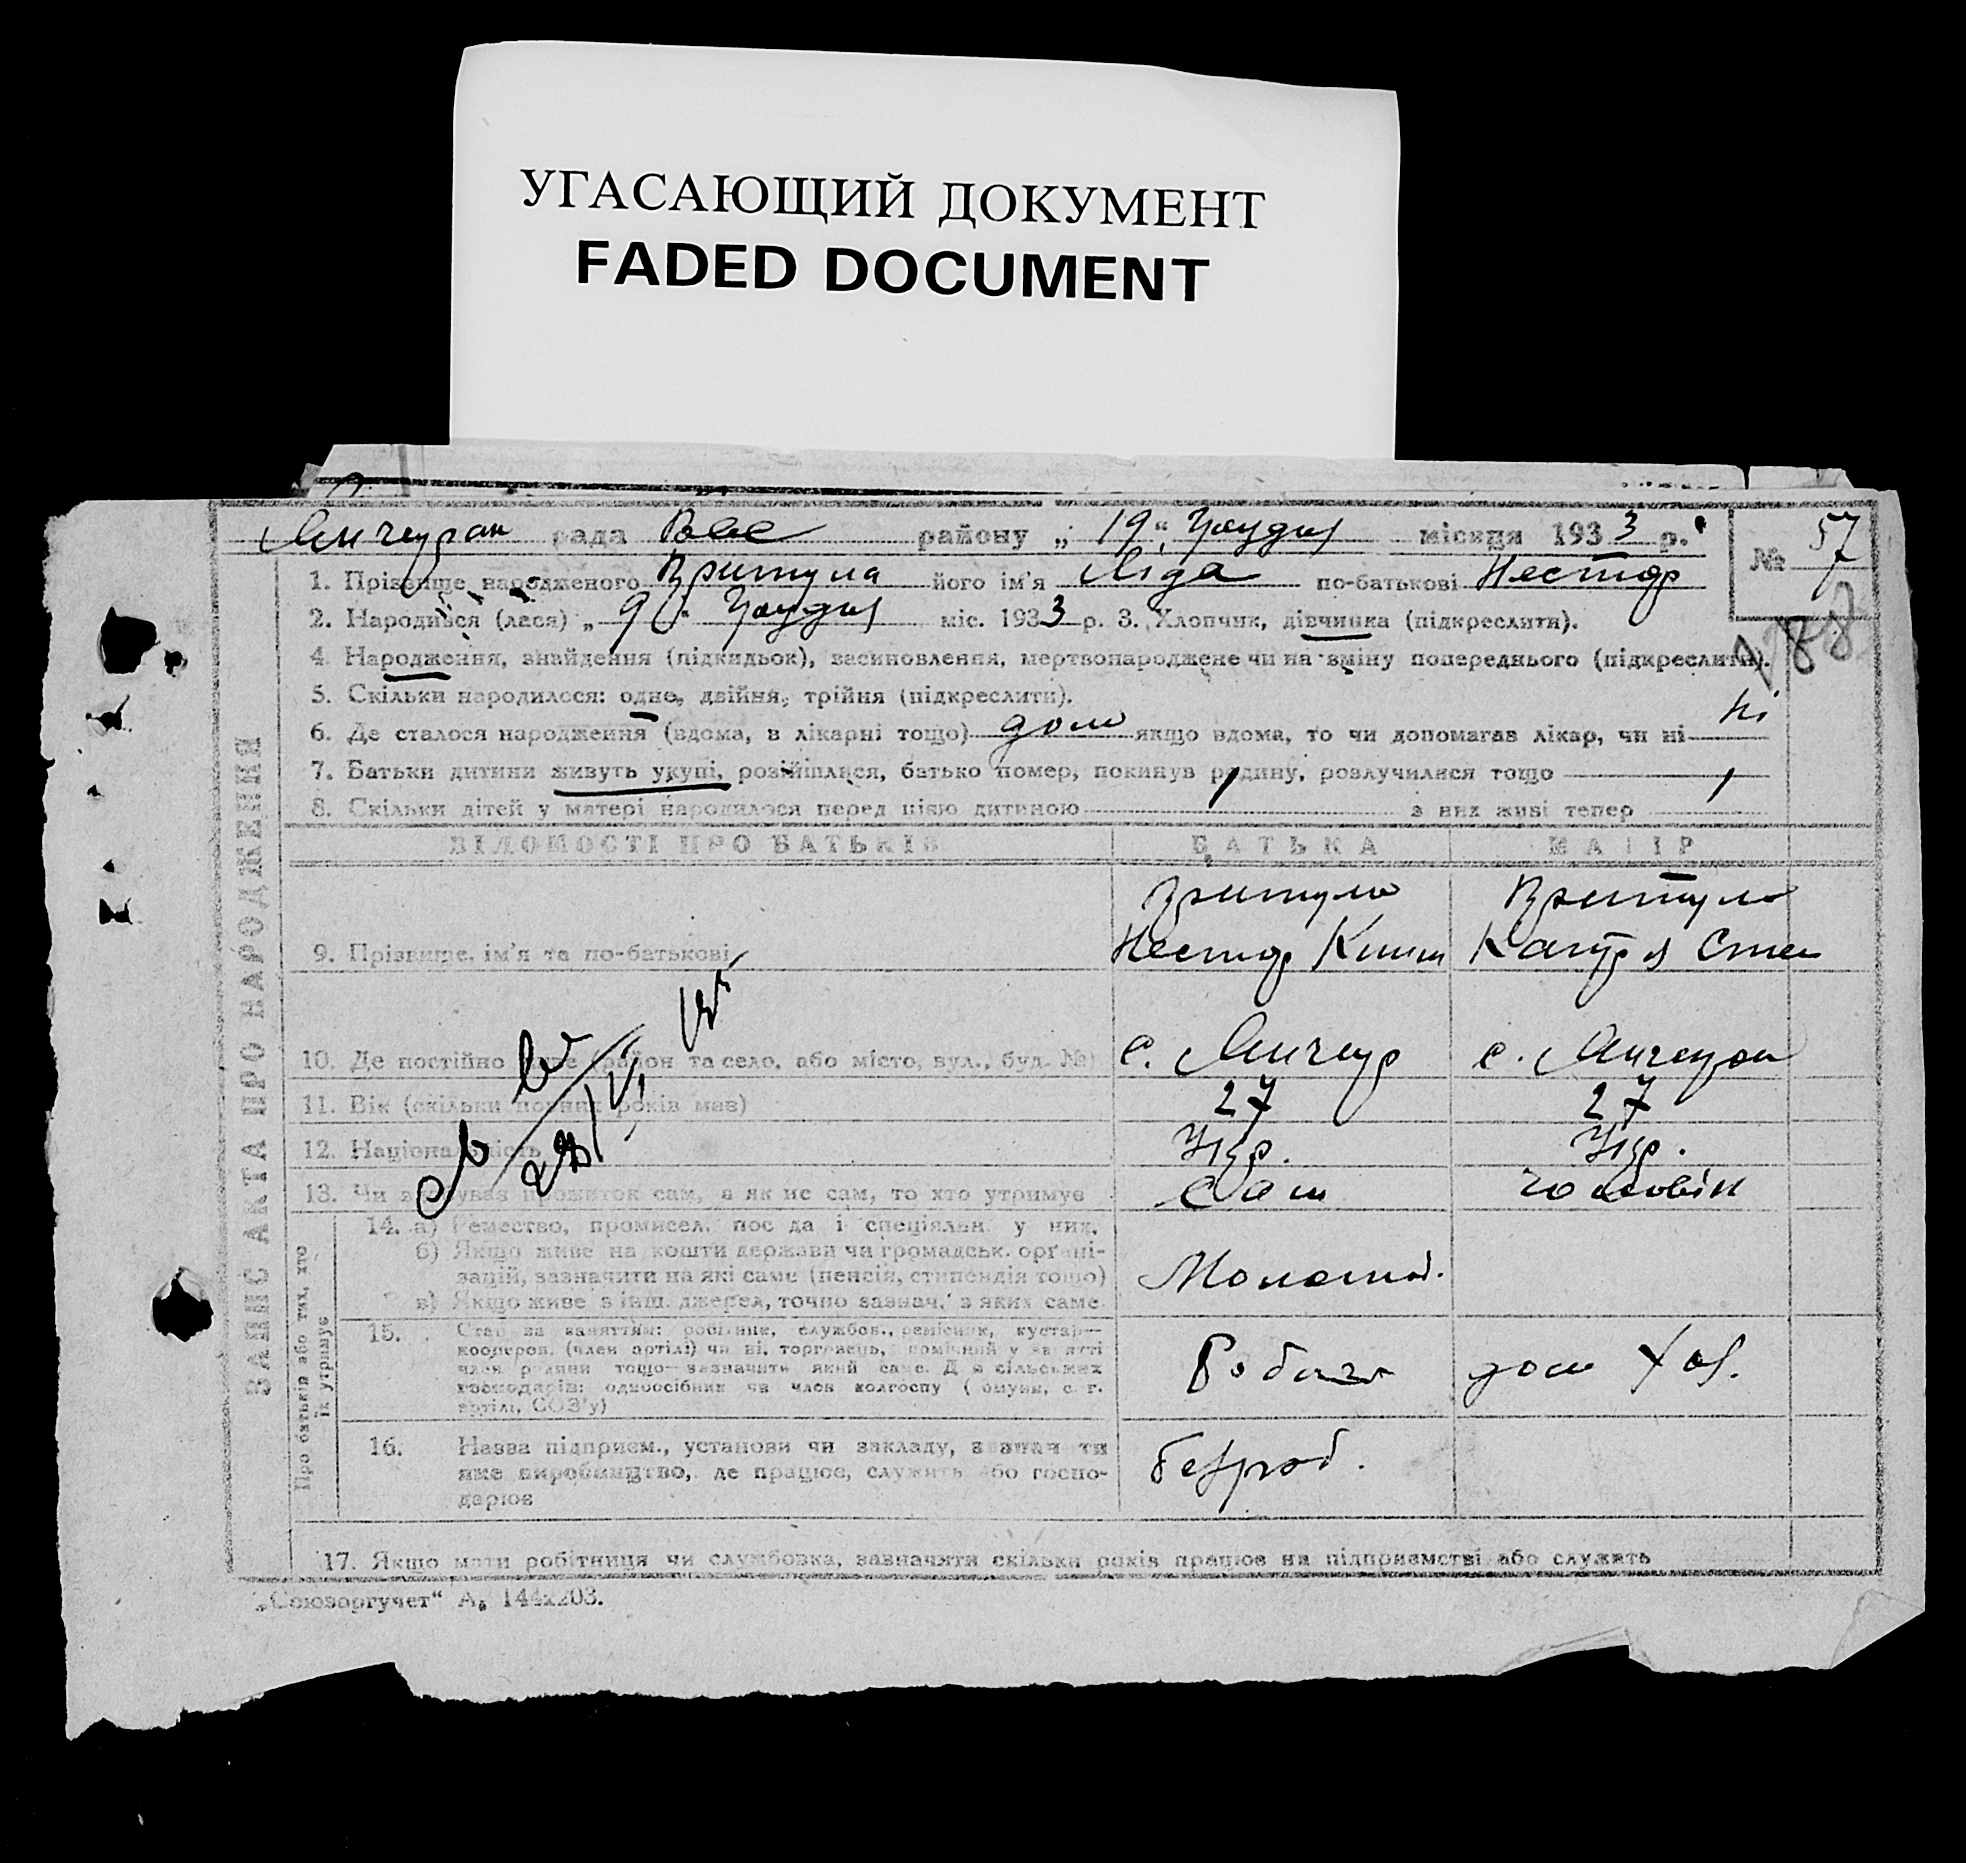 УГАСАЮЩИЙ ДОКУМЕНТ
FADED DOCUMENT
рада района району „ 19 “ Грудня місяця 1933 р.
№ 57
1. Прізвище народженого Притула його ім'я Ліда по-батькові Нестор
2. Народився (лася) „ 9 “ Грудня міс. 1933 р. 3. Хлопчик, дівчинка (підкреслити).
4. Народження, знайдення (підкидьок), всиновлення, мертвонароджене чи на зміну попереднього (підкреслити).
5. Скільки народилося: одне, двійня, трійня (підкреслити).
6. Де сталося народження (вдома, в лікарні тощо) дом якщо вдома, то чи допомагав лікар, чи ні ні
7. Батьки дитини живуть укупі, розійшлися, батько помер, покинув родину, розлучилися тощо
8. Скільки дітей у матері народилося перед цією дитиною 1 з них живі тепер 1
ЗАПИС АКТА ПРО НАРОДЖЕННЯ
ВІДОМОСТІ ПРО БАТЬКІВ БАТЬКА МАТІР
Притула Притула
9. Прізвище, ім'я та по-батькові Нестор
10. Де постійно район та село, або місто, вул., буд. №) с. с.
11. Вік (скільки повних років мав) 27 27
12. Національність Укр. Укр.
13. Чи прожиток сам, а як не сам, то хто утримує Сам чоловік
Про батьків або тих, хто їх утримує
14. а) Ремество, промисел, посада і спеціяльн. у них.
б) Якщо живе на кошти держави чи громадськ. органі-
зацій, зазначити на які саме (пенсія, стипендія тощо)
в) Якщо живе з інш. джерел, точно зазнач. з яких саме
15. Стан за заняттям: робітник, службов., ремісник, кустар—
кооперов. (член артілі) чи ні, торговець, помічний у занятті
член родини тощо—зазначити який саме. Для сільських
господарів: одноосібник чи член колгоспу ( омуни, с. г.
артілі, СОЗ'у)
дом хоз.
16. Назва підприєм., установи чи закладу, зазначити
яке виробництво, де працює, служить або госпо-
дарює
безроб.
17. Якщо мати робітниця чи службовка, зазначити скільки років працює на підприємстві або служить
„Союзоргучет“ А₆ 144х203.